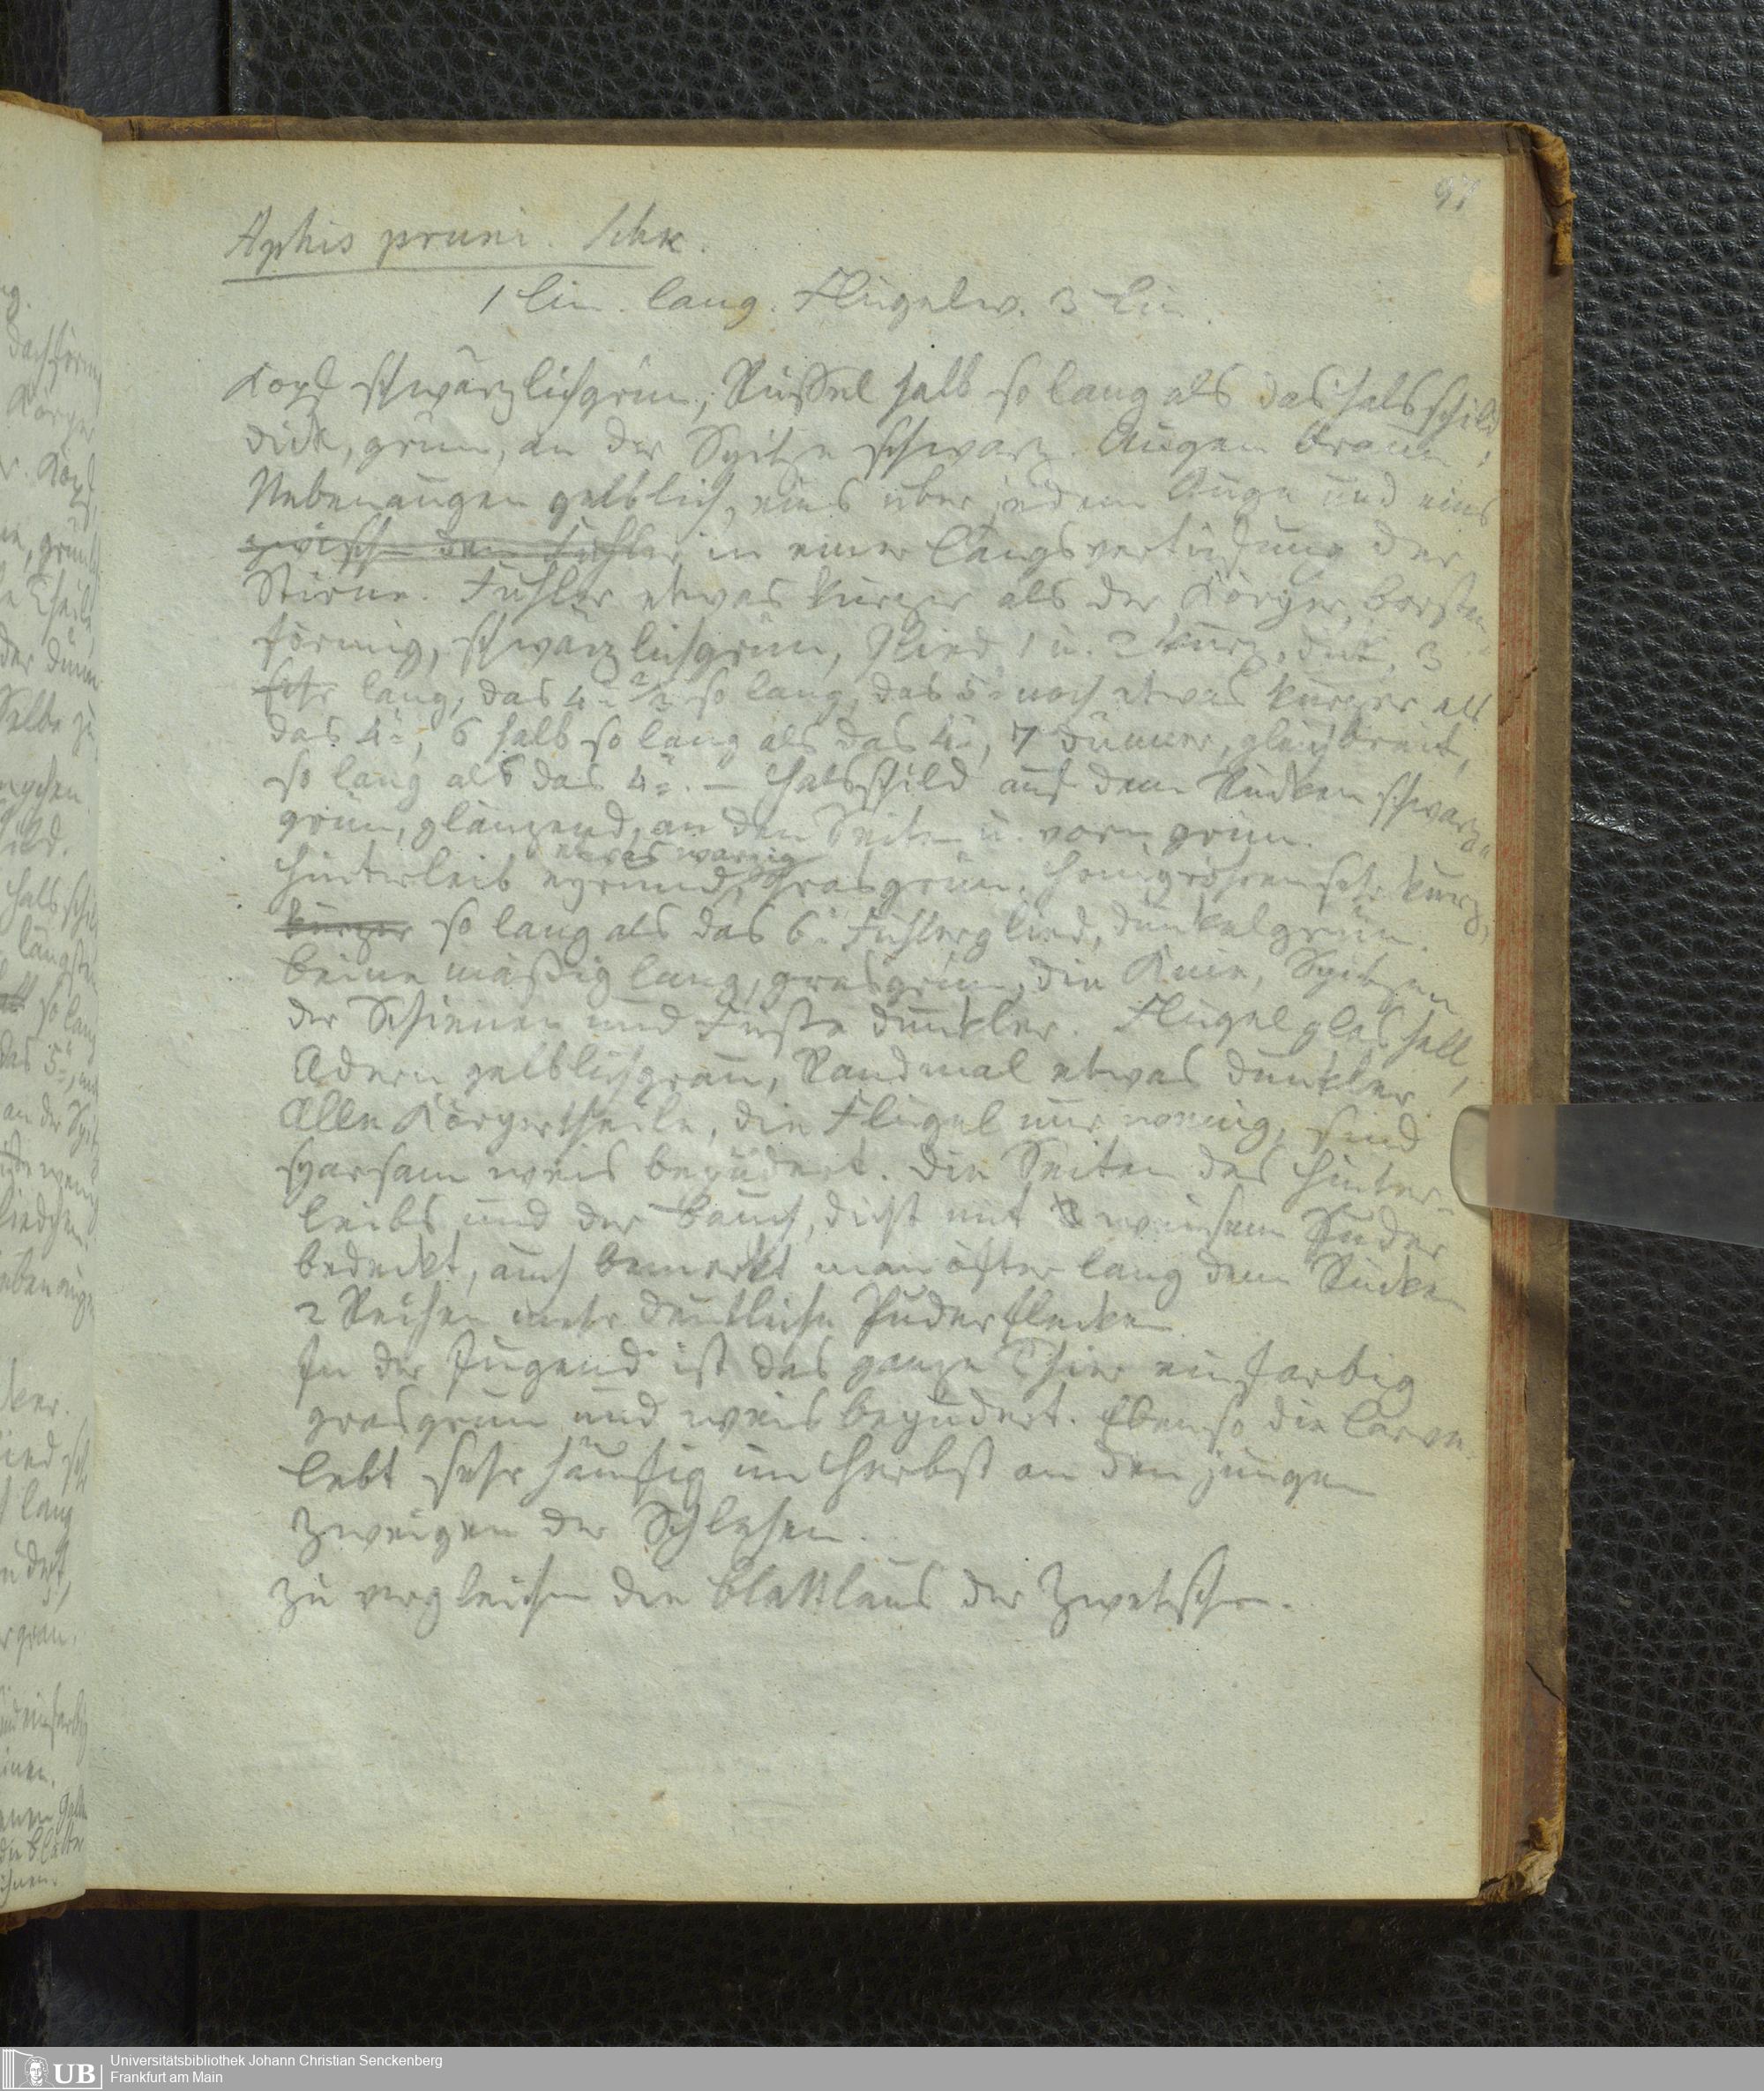 97
Aphis pruni. Schk.
1 Lin. lang. Flügelw. 3 Lin.
Kopf schwärzlichgrün, Rüssel halb so lang als das Halsschild
dick, grün, an der Spitze schwarz. Augen braun;
Nebenaugen gelblich, eins über jedem Auge und eins
zwischen den Fühler in einer Längsvertiefung der
Stirne. Fühler etwas kürzer als der Körper, borsten
förmig, schwärzlichgrün, Glied 1 u. 2 kurz, dick, 3
sehr lang, das 4te 2/3 so lang, das 5te noch etwas kürzer als
das 4te, 6 halb so lang als das 4te, 7 dünner, gleichbreit,
so lang als das 4te. – Halsschild auf dem Rücken schwarz
grün, glänzend, an den Seiten u. vorn grün.
etwas warzig
Hinterleib eyrund, grasgrün. Honigröhren sehr kurz,
kürzer so lang als das 6te Fühlerglied, dunkelgrün.
Beine mäßig lang, grasgrün, die Knie, Spitzen
der Schienen und Füsse dunkler. Flügel glashell,
Adern gelblichgrau, Randmal etwas dunkler.
Alle Körpertheile, die Flügel nur wenig, sind
sparsam weis bepudert. Die Seiten des Hinter-
leibs und der Bauch, dicht mit weisem Puder
bedeckt, auch bemerkt man öfter lang dem Rücken
2 Reihen mehr deutliche Puderflecken
In der Jugend ist das ganze Thier einfarbig
grasgrün und weis bepudert. Ebenso die Larve.
Lebt sehr häufig im Herbst an den jungen
Zweigen der Schlehen.
Zu vergleichen die Blattlaus der Zwetschen.
UB
Universitätsbibliothek Johann Christian Senckenberg
Frankfurt am Main